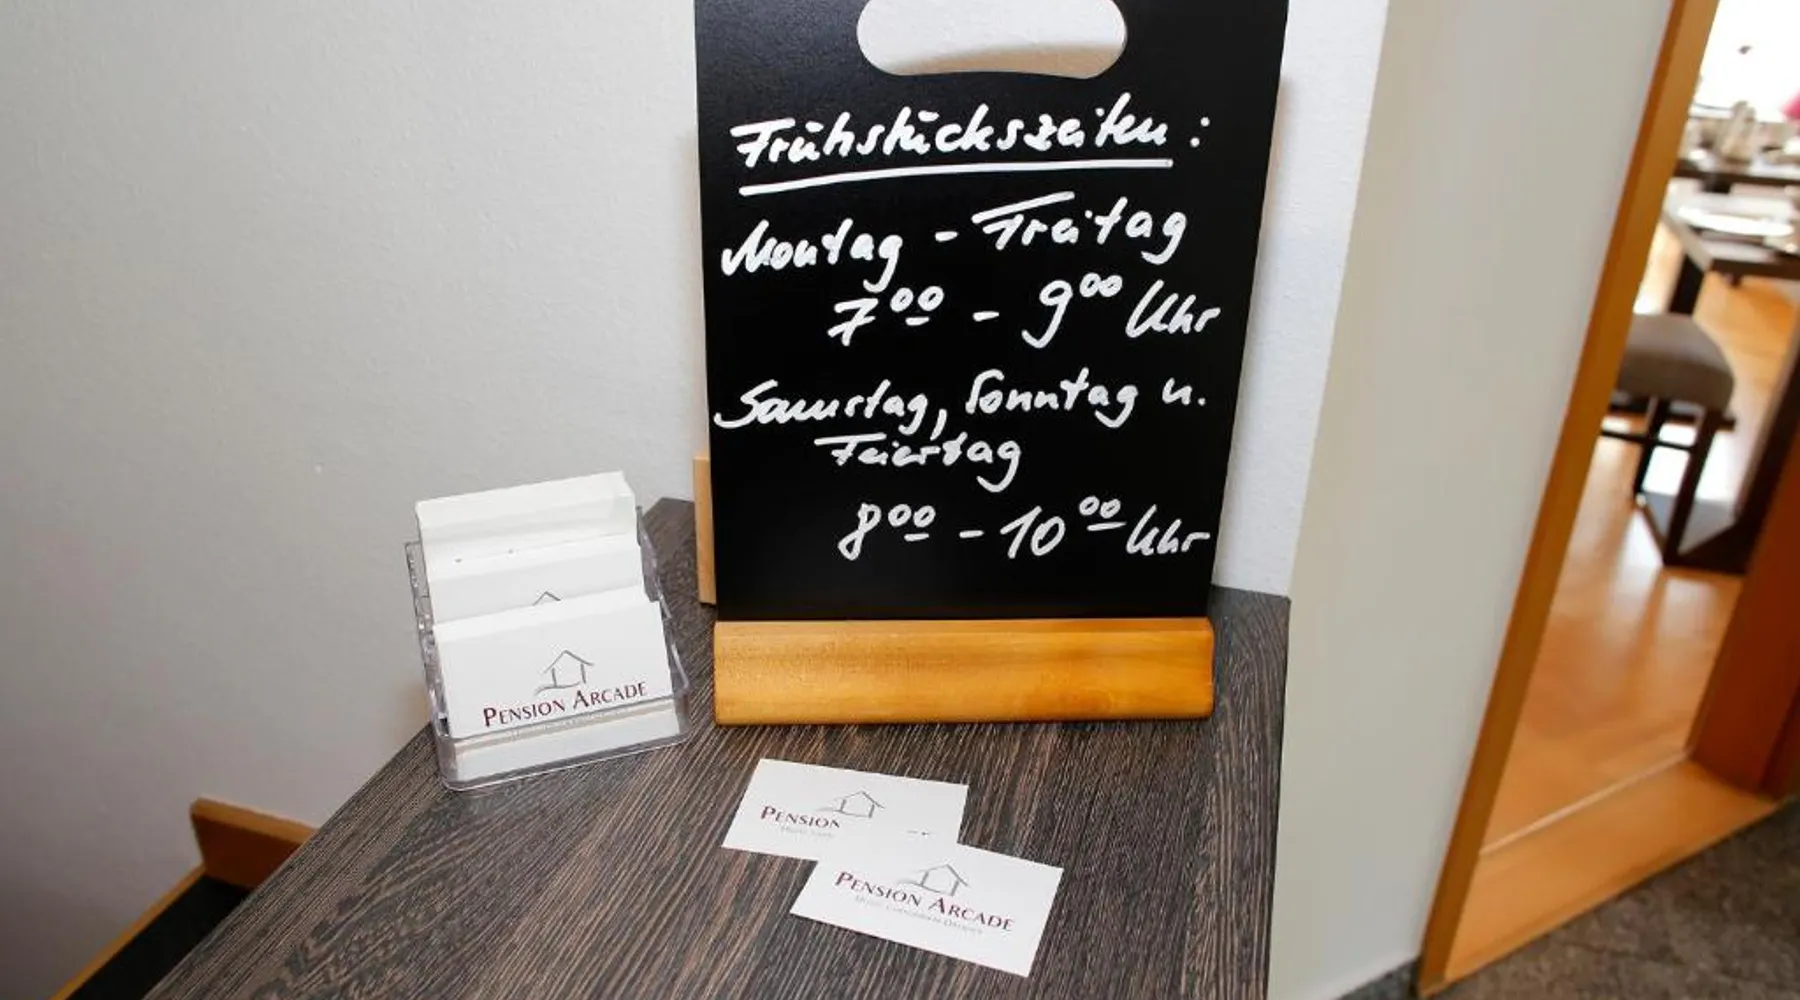 Frühstückszeiten:
Montag - Freitag
7⁰⁰ - 9⁰⁰ Uhr
Samstag, Sonntag u.
Feiertag
8⁰⁰ - 10⁰⁰ Uhr
PENSION ARCADE
PENSION
PENSION ARCADE